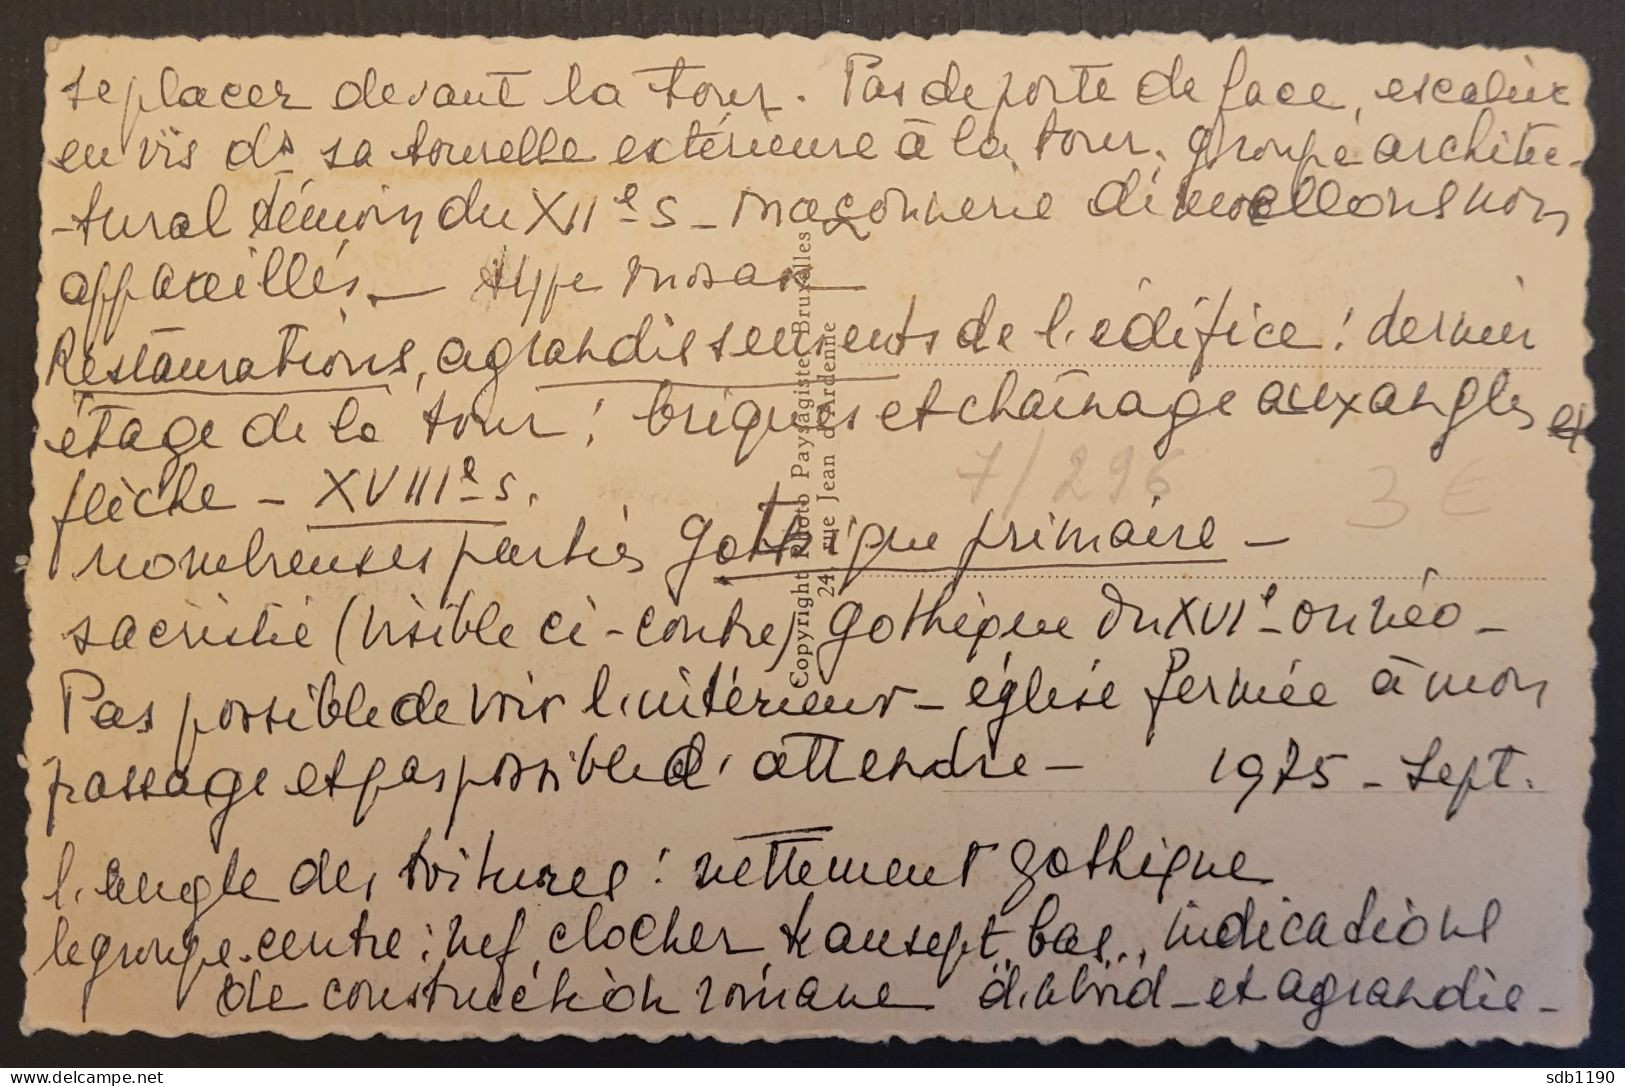 se placer devant la tour. Pas de porte de face, escalier
en vis ds sa tourelle extérieure à la tour. groupe architec-
-tural témoin du XIIe s - maçonnerie de moellons non
appareillés. - type mosan
Restaurations, agrandissements de l'édifice : dernier
étage de la tour : briques et chaînage aux angles et
flèche - XVIIIe s.
nombreuses parties gothique primaire -
sacristie (visible ci-contre) gothique du XVIe ou néo -
Pas possible de voir l'intérieur - église fermée à mon
passage et pas possible d'attendre - 1975 - Sept.
l'angle des toitures : nettement gothique
le groupe centre : nef, clocher, transept bas.., indications
de construction romane d'abord - et agrandie -
Copyright Photo Paysagiste, Bruxelles
24, rue Jean d'Ardenne
7/296
3 €
sdb1190